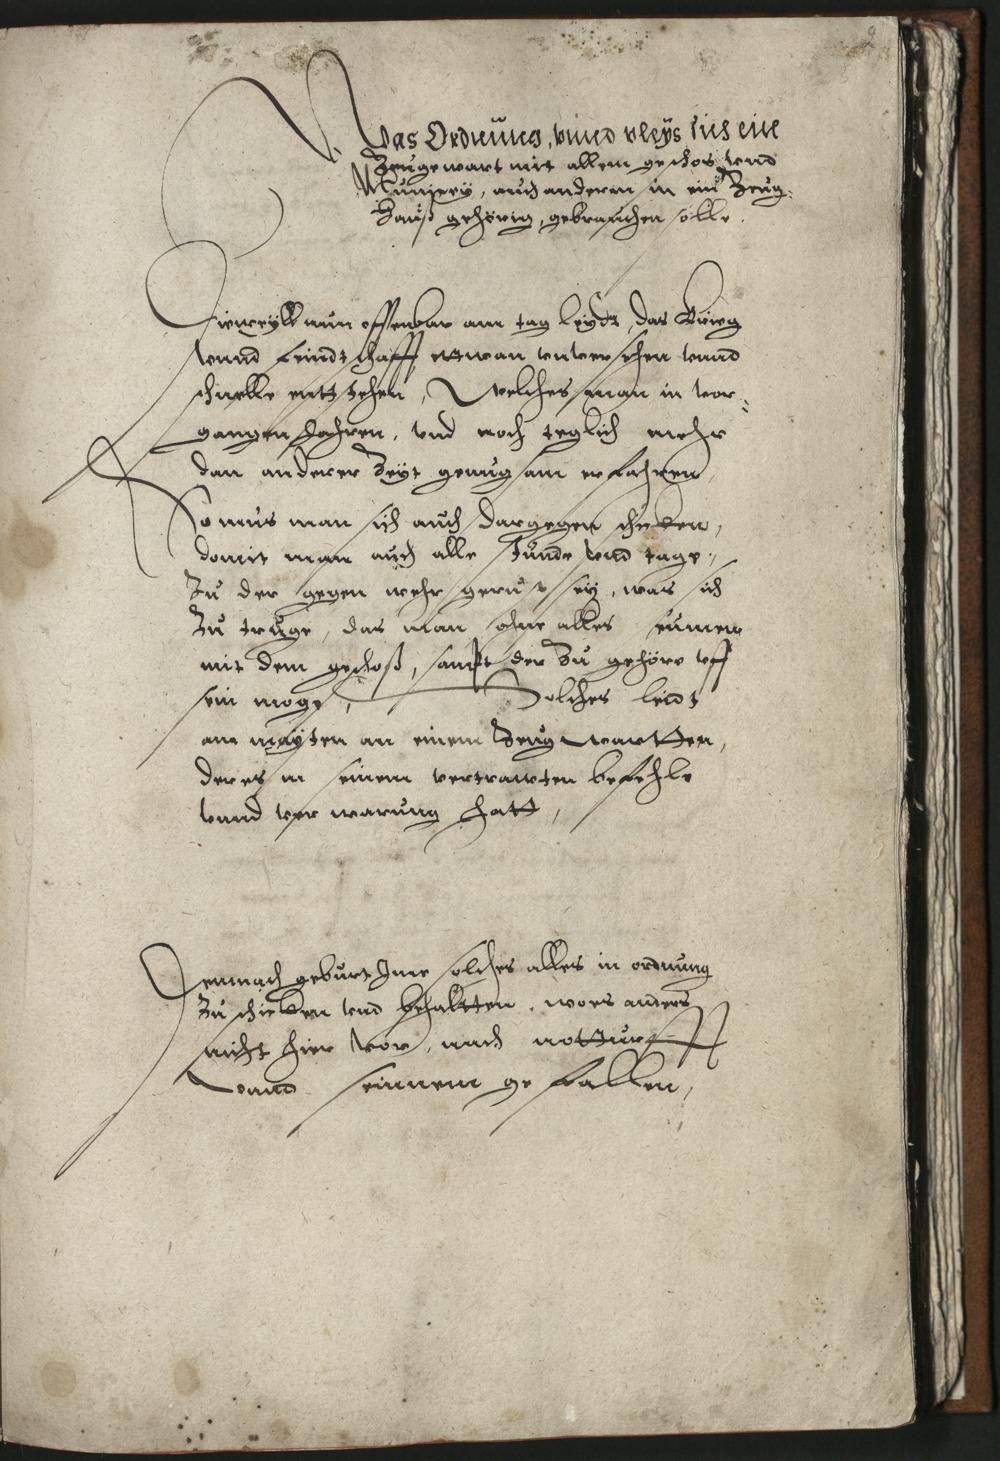 2
Was Ordnung, unnd vleys sich ein
Zeugewart mit allem geschos vnd
Munizey, auch anderm in ein Zeug-
hauß gehörig, gebrauchen solle.
Dieweyll nun offenbar am tag leydt, das Krieg
vnnd feindtschafft ettwan vnversehen vnnd
schnelle entstehen, Welches man in vor-
gangen Jahren, vnd noch teglich mehr
dan anderer Zeyt genugsam erfahren,
So mus man sich auch dargegen schicken,
domit man auch alle Stunde vnd tage,
zu der gegen wehr gerust sey, was sich
zu truge, das man ohne alles seumen
mit dem geschoß, sampt der zu gehöre vff
sein moge, Solches leidt
am maysten an einem Zeugwartten,
der es in seinem vertrawten befehle
vnnd verwarung hatt,
Demnach geburt Ime solches alles in ordnung
zu schicken vnd behaltten, wo es anders
nicht hier vor, nach notturfft
vnnd seinnem gefallen,